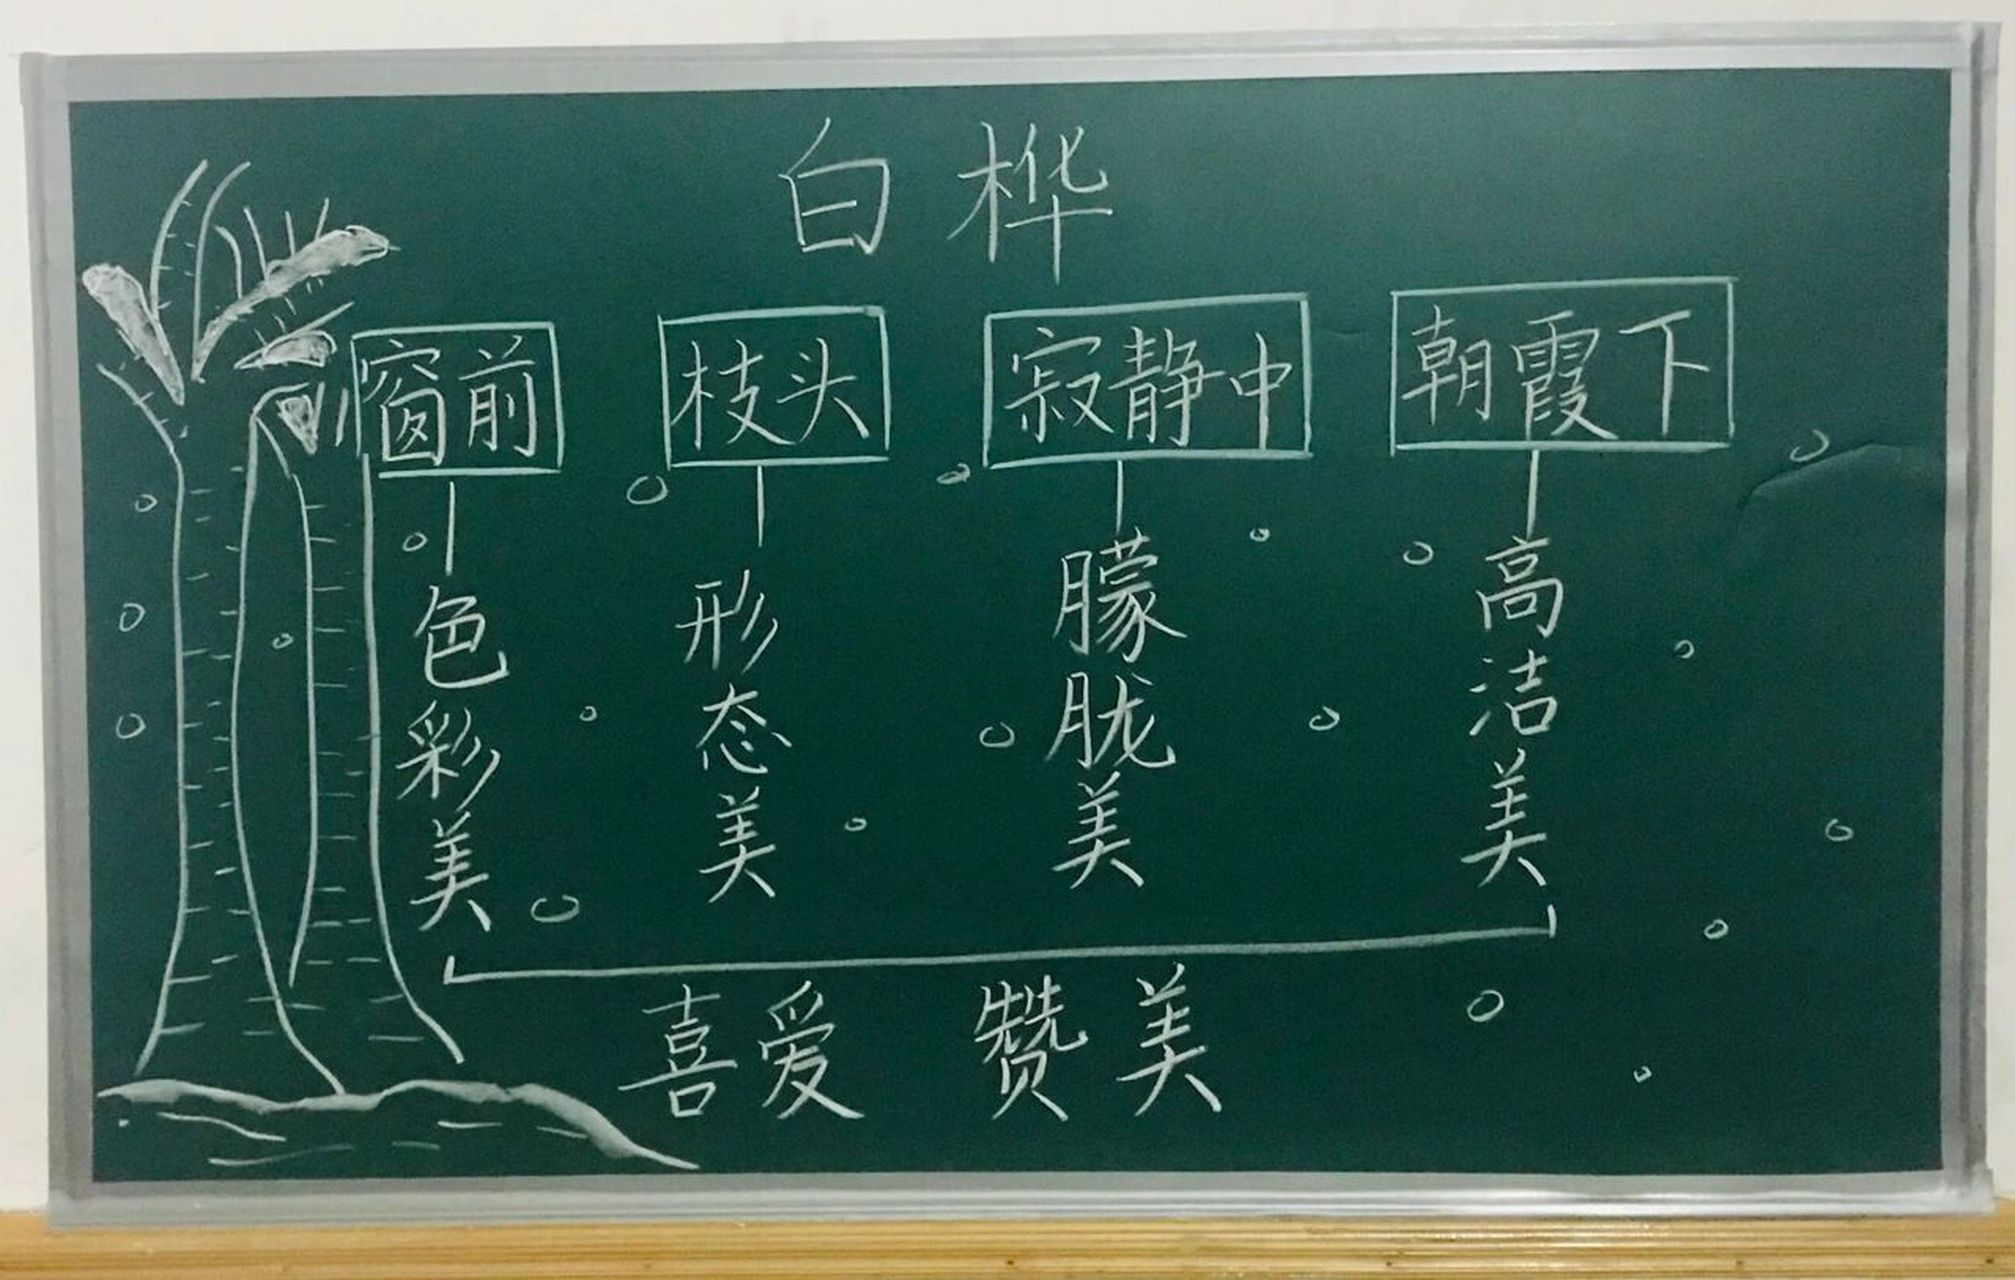 白桦
窗前 枝头 寂静中 朝霞下
色彩美 形态美 朦胧美 高洁美
喜爱 赞美